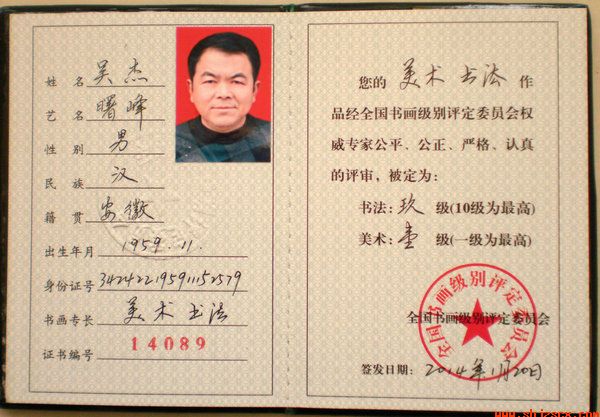 姓 名 吴杰
艺 名 曙峰
性 别 男
民 族 汉
籍 贯 安徽
出生年月 1959.11.
身份证号 342422195911152579
书画专长 美术 书法
证书编号 14089
您的 美术 书法 作
品经全国书画级别评定委员会权
威专家公平、公正、严格、认真
的评审，被定为：
书法：玖 级(10级为最高)
美术：壹 级(一级为最高)
全国书画级别评定委员会
全国书画级别评定委员会
签发日期：2014年1月20日